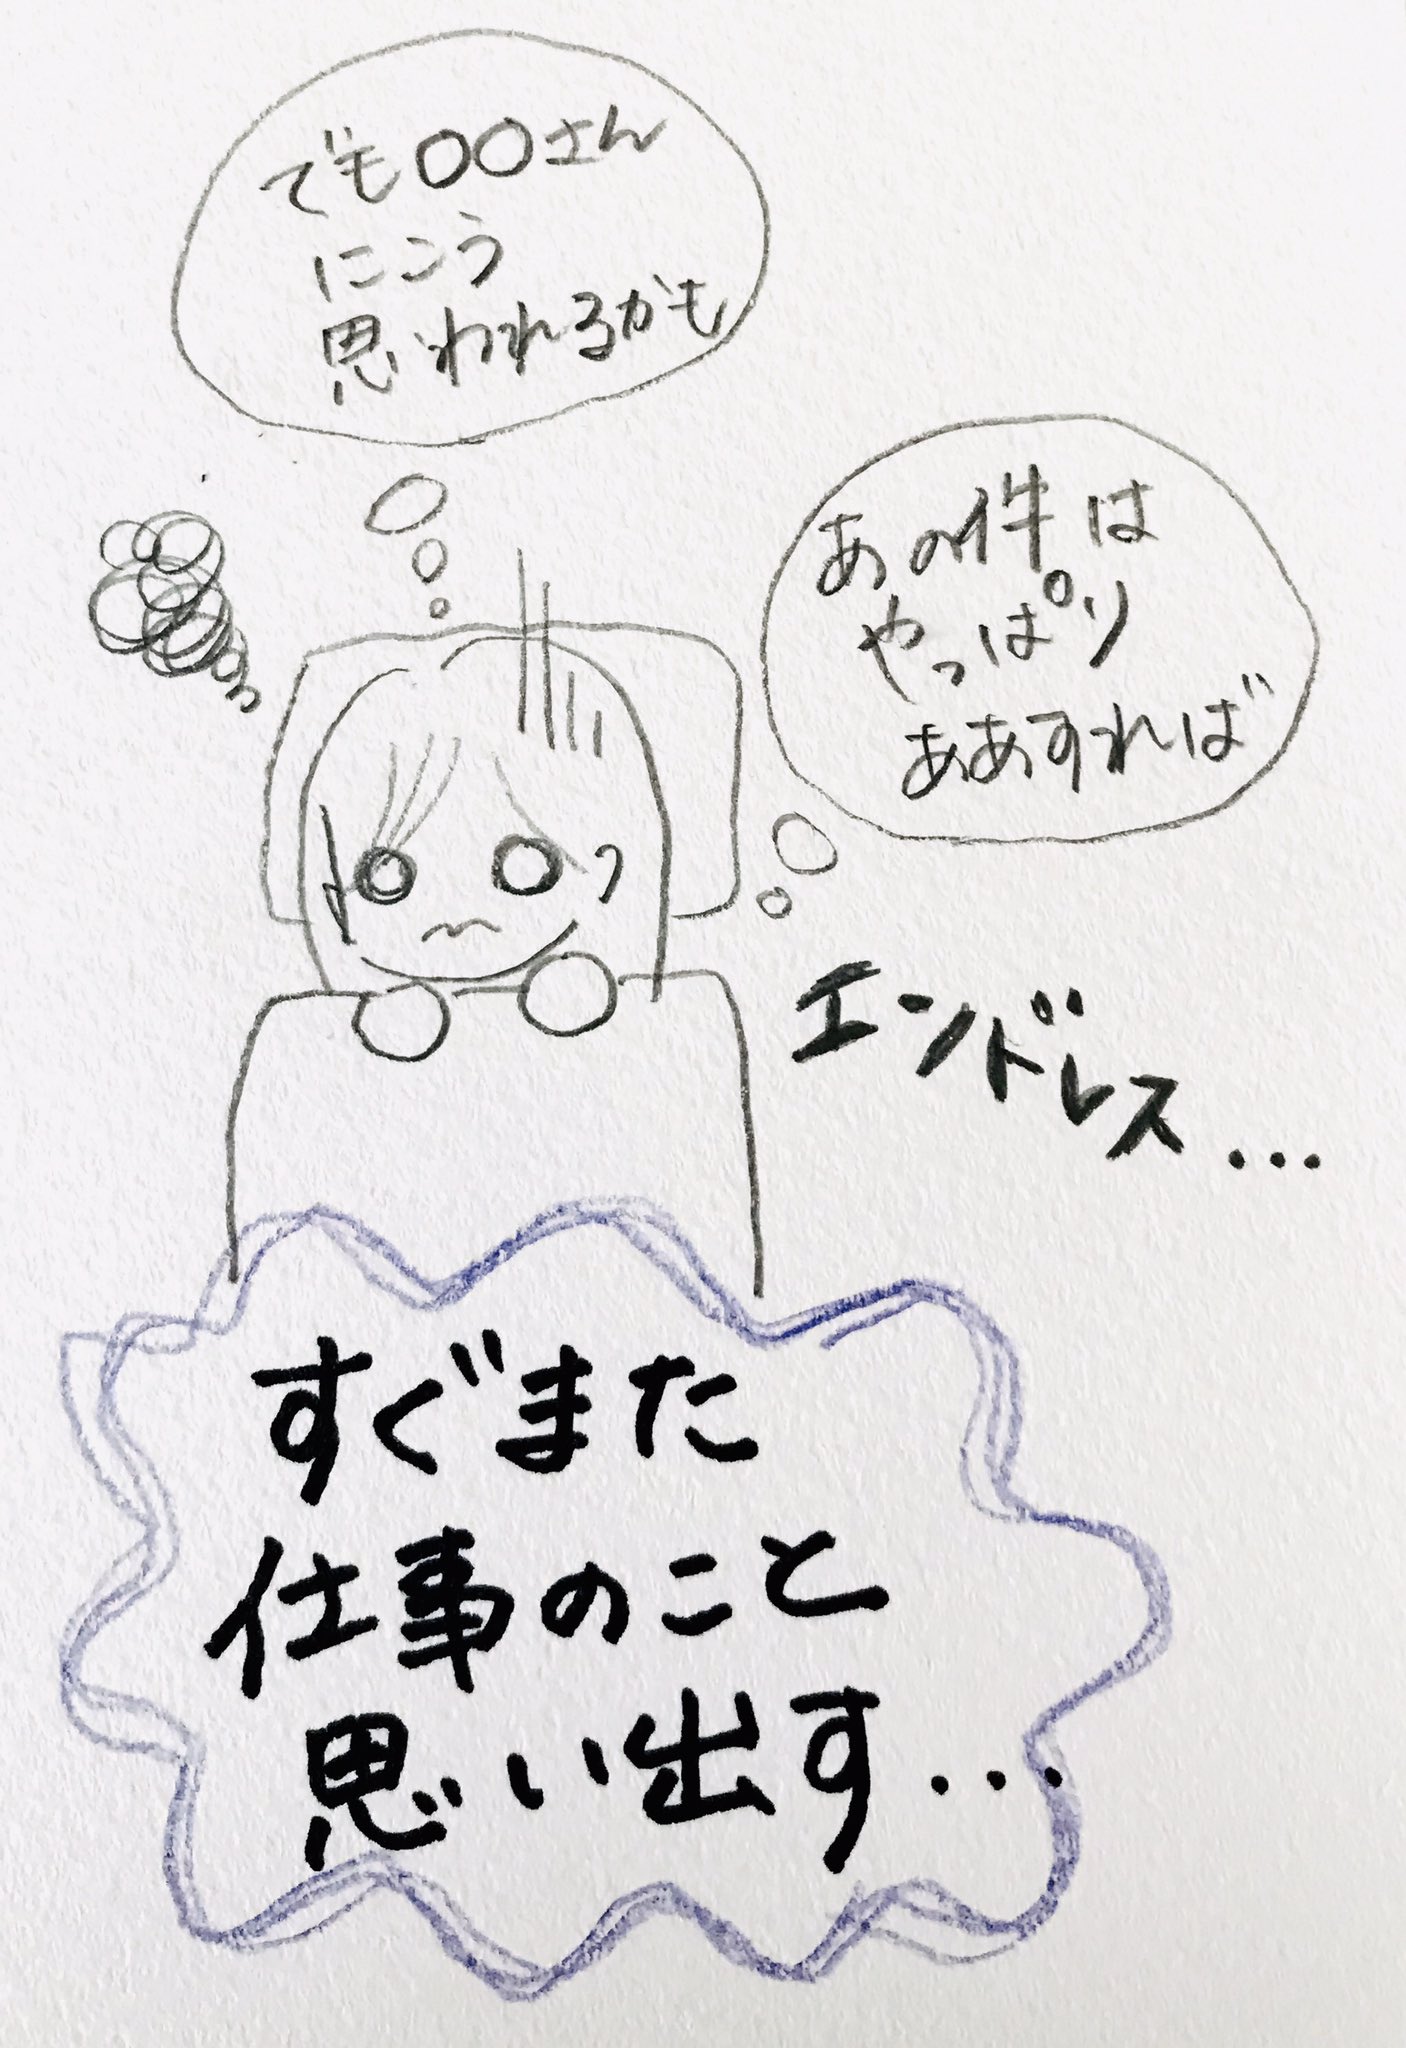 でも〇〇さん
にこう
思われるかも
あの件は
やっぱり
ああすれば
エンドレス...
すぐまた
仕事のこと
思い出す...